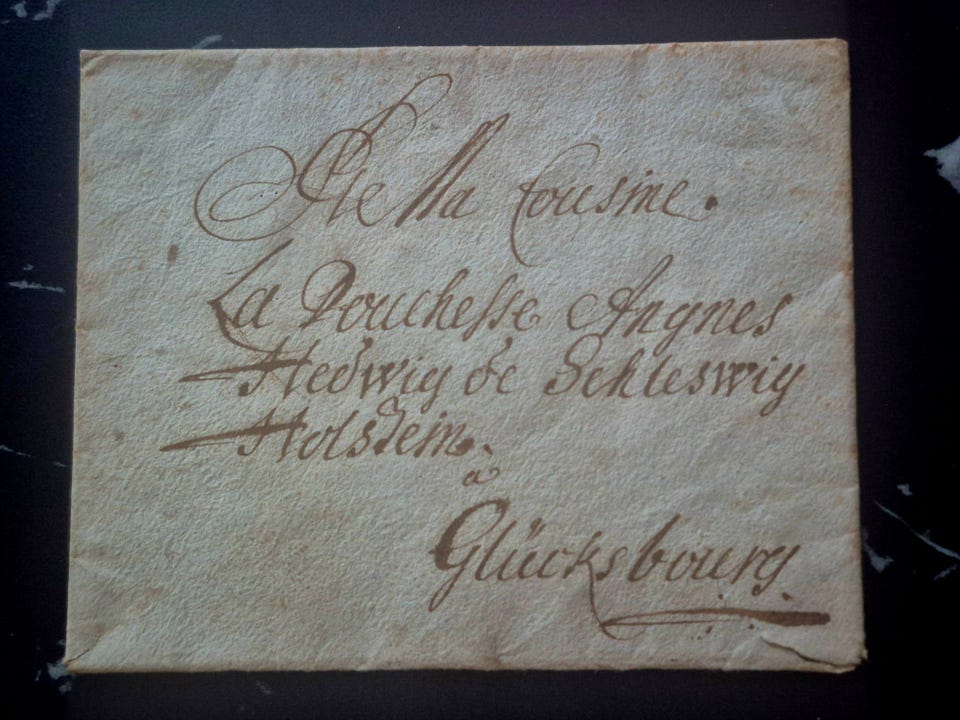 A Ma Cousine.
La Douchesse Angnes
Hedwig de Schleswig
Holstein.
a
Glücksbourg.